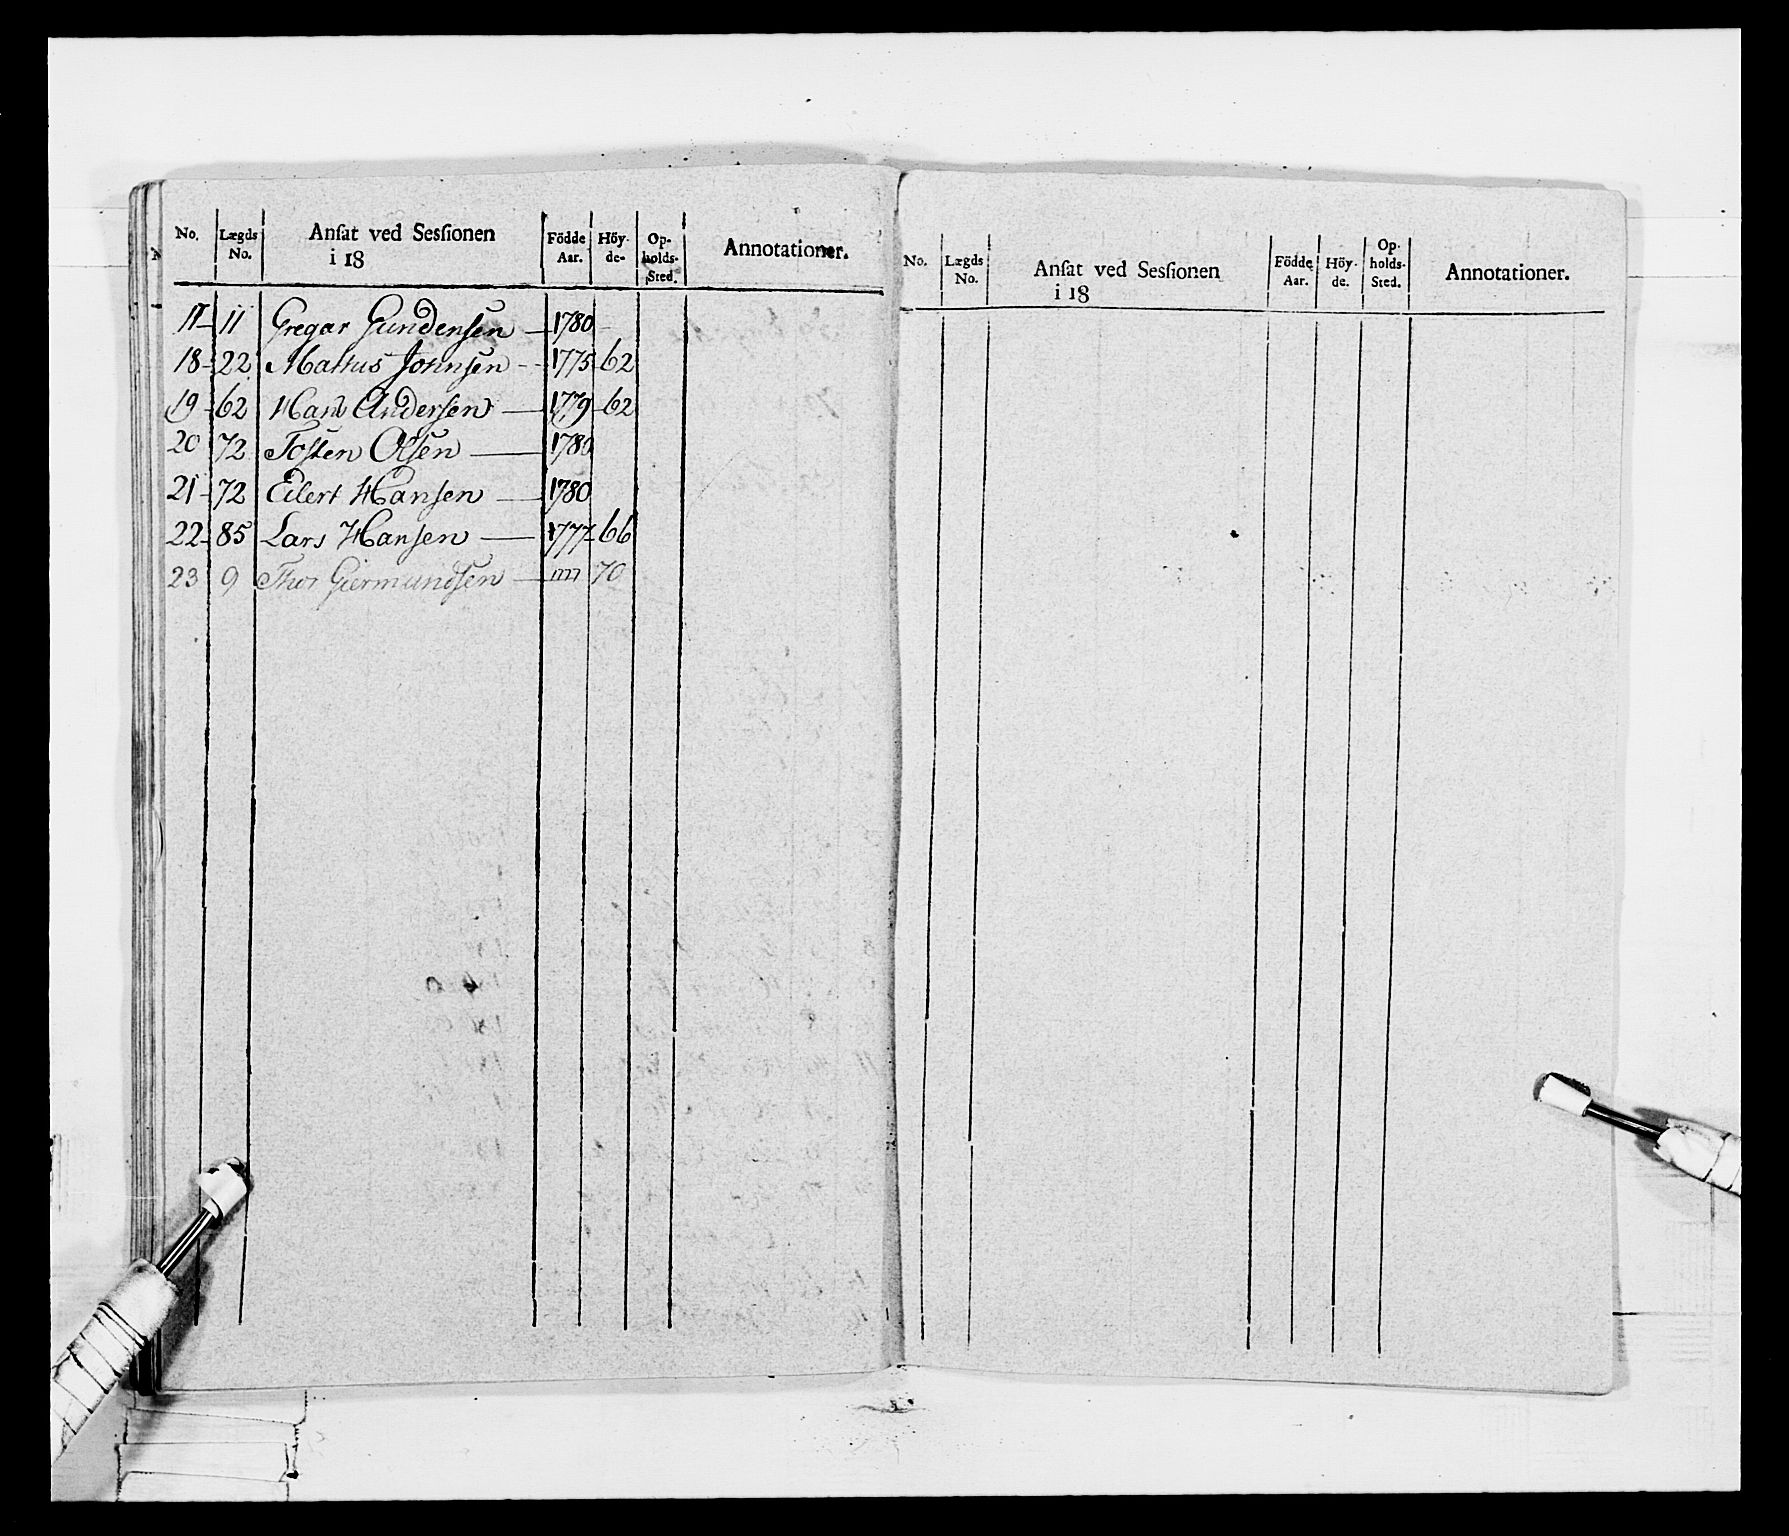 No. Lægds No. Anſat ved Seſſionen i 18 Födde Aar. Höy- de- Op- holds- Sted. Annotationer.
17 - 11 Gregar Gundersen — 1780 -
18 - 22 Mattus Johnsen - - 1775 - 62
19 - 62 Hans Andersen — 1779 - 62
20 72 Tosten Olsen — 1780
21 - 72 Eilert Hansen — 1780
22 - 85 Lars Hansen — 1777 - 66
23 9 Thor Giermundsen — 1777 70
No. Lægds No. Anſat ved Seſſionen i 18 Födde Aar. Höy- de. Op- holds- Sted. Annotationer.